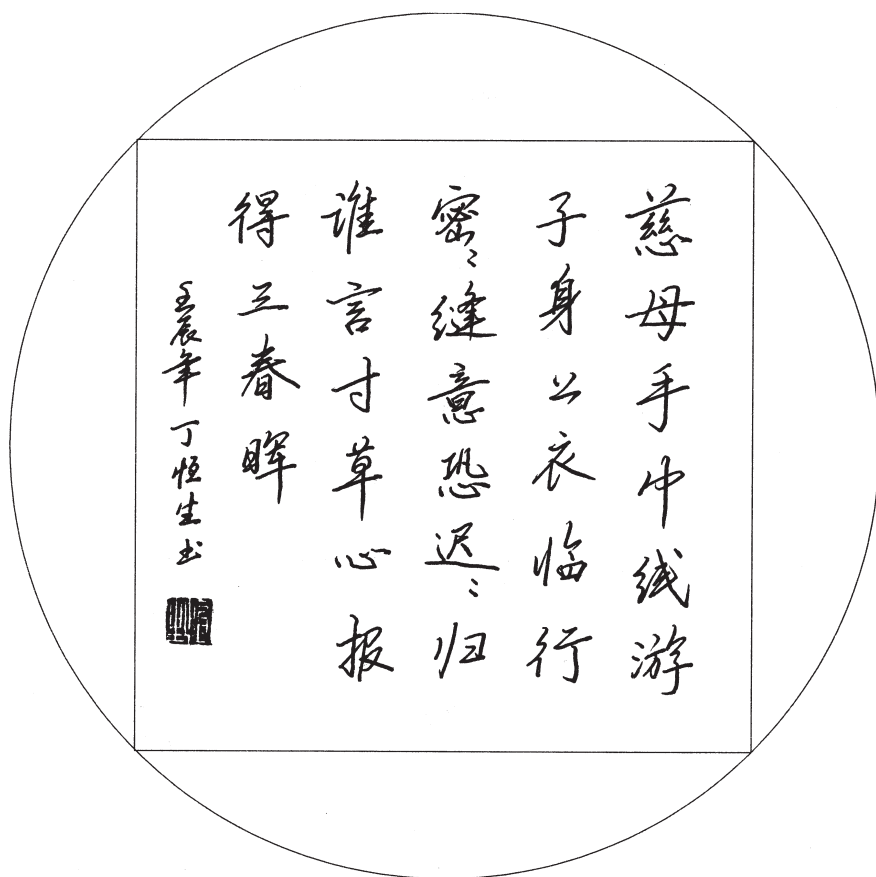 慈母手中线游
子身上衣临行
密〻缝意恐迟〻归
谁言寸草心报
得三春晖
壬辰年丁恒生书